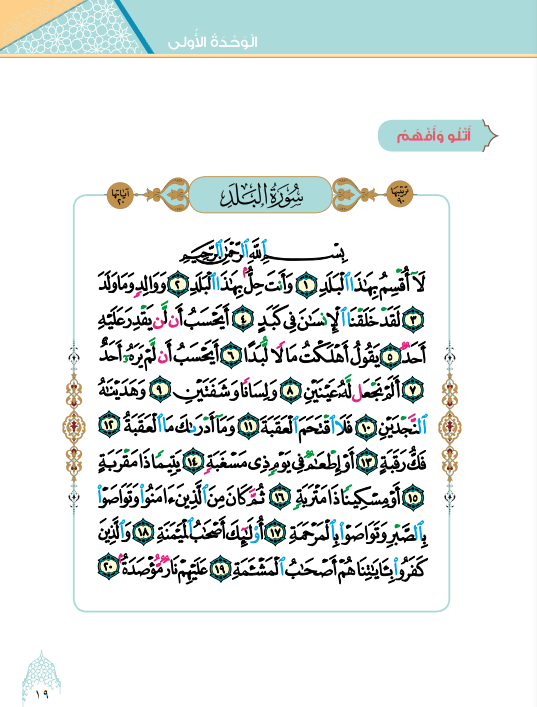 الْوَحْدَةُ الْأُولَى
أَتْلُو وَأَفْهَمُ
آيَاتُهَا ٢٠
سُورَةُ الْبَلَدِ
تَرْتِيبُهَا ٩٠
بِسْمِ اللَّهِ الرَّحْمَٰنِ الرَّحِيمِ
لَآ أُقْسِمُ بِهَٰذَا ٱلْبَلَدِ ١ وَأَنتَ حِلٌّۢ بِهَٰذَا ٱلْبَلَدِ ٢ وَوَالِدٍ وَمَا وَلَدَ
٣ لَقَدْ خَلَقْنَا ٱلْإِنسَٰنَ فِى كَبَدٍ ٤ أَيَحْسَبُ أَن لَّن يَقْدِرَ عَلَيْهِ
أَحَدٌ ٥ يَقُولُ أَهْلَكْتُ مَالًا لُّبَدًا ٦ أَيَحْسَبُ أَن لَّمْ يَرَهُۥٓ أَحَدٌ
٧ أَلَمْ نَجْعَل لَّهُۥ عَيْنَيْنِ ٨ وَلِسَانًا وَشَفَتَيْنِ ٩ وَهَدَيْنَٰهُ
ٱلنَّجْدَيْنِ ١٠ فَلَا ٱقْتَحَمَ ٱلْعَقَبَةَ ١١ وَمَآ أَدْرَىٰكَ مَا ٱلْعَقَبَةُ ١٢
فَكُّ رَقَبَةٍ ١٣ أَوْ إِطْعَٰمٌ فِى يَوْمٍ ذِى مَسْغَبَةٍ ١٤ يَتِيمًا ذَا مَقْرَبَةٍ
١٥ أَوْ مِسْكِينًا ذَا مَتْرَبَةٍ ١٦ ثُمَّ كَانَ مِنَ ٱلَّذِينَ ءَامَنُوا۟ وَتَوَاصَوْا۟
بِٱلصَّبْرِ وَتَوَاصَوْا۟ بِٱلْمَرْحَمَةِ ١٧ أُو۟لَٰٓئِكَ أَصْحَٰبُ ٱلْمَيْمَنَةِ ١٨ وَٱلَّذِينَ
كَفَرُوا۟ بِـَٔايَٰتِنَا هُمْ أَصْحَٰبُ ٱلْمَشْـَٔمَةِ ١٩ عَلَيْهِمْ نَارٌ مُّؤْصَدَةٌۢ ٢٠
١٩